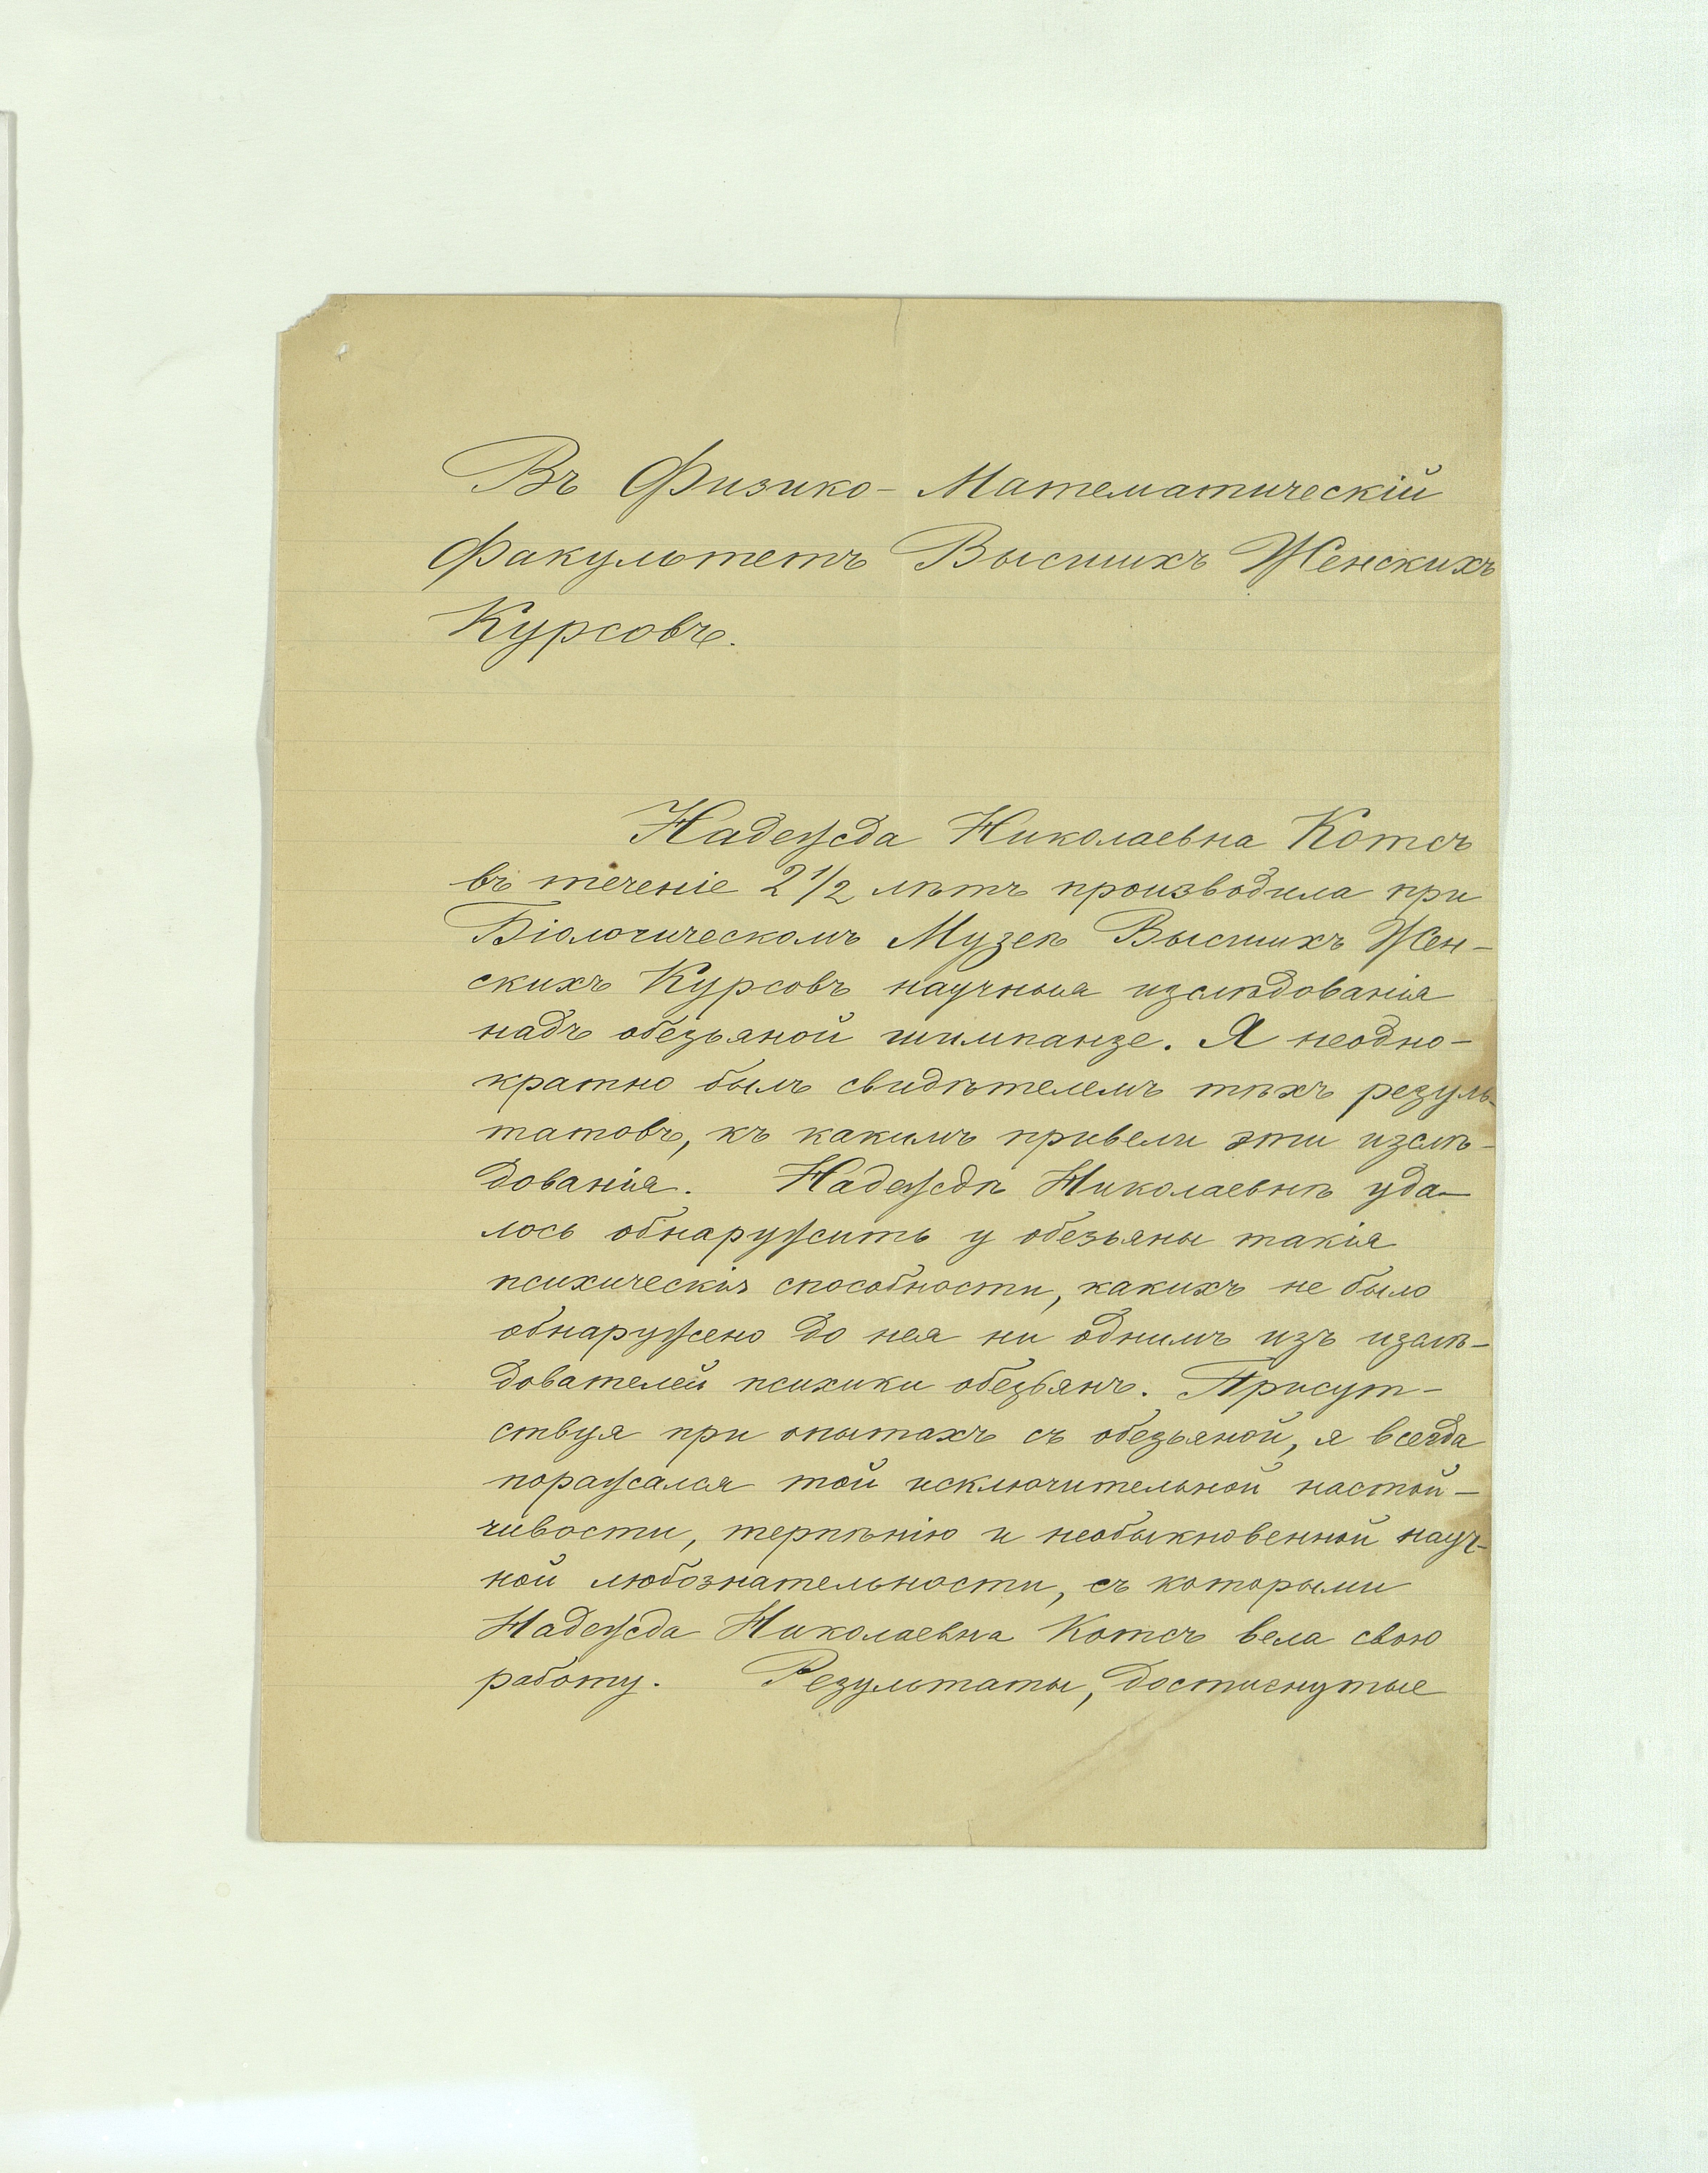 Въ Физико- Математическій
Факультетъ Высшихъ Женскихъ
Курсовъ.
Надежда Николаевна Котсъ
въ теченіе 2 1/2 лѣтъ производила при
Біологическомъ Музеѣ Высшихъ Жен-
скихъ Курсовъ научныя изслѣдованія
надъ обезьяной шимпанзе. Я неодно-
кратно былъ свидѣтелемъ тѣхъ резуль-
татовъ, къ какимъ привели эти изслѣ-
дованія. Надеждѣ Николаевнѣ уда-
лось обнаружить у обезьяны такія
психическія способности, какихъ не было
обнаружено до нея ни однимъ изъ изслѣ-
дователей психики обезьянъ. Присут-
ствуя при опытахъ съ обезьяной, я всегда
поражался той исключительной настой-
чивости, терпѣнію и необыкновенной науч-
ной любознательности, съ которыми
Надежда Николаевна Котсъ вела свою
работу. Результаты, достигнутые